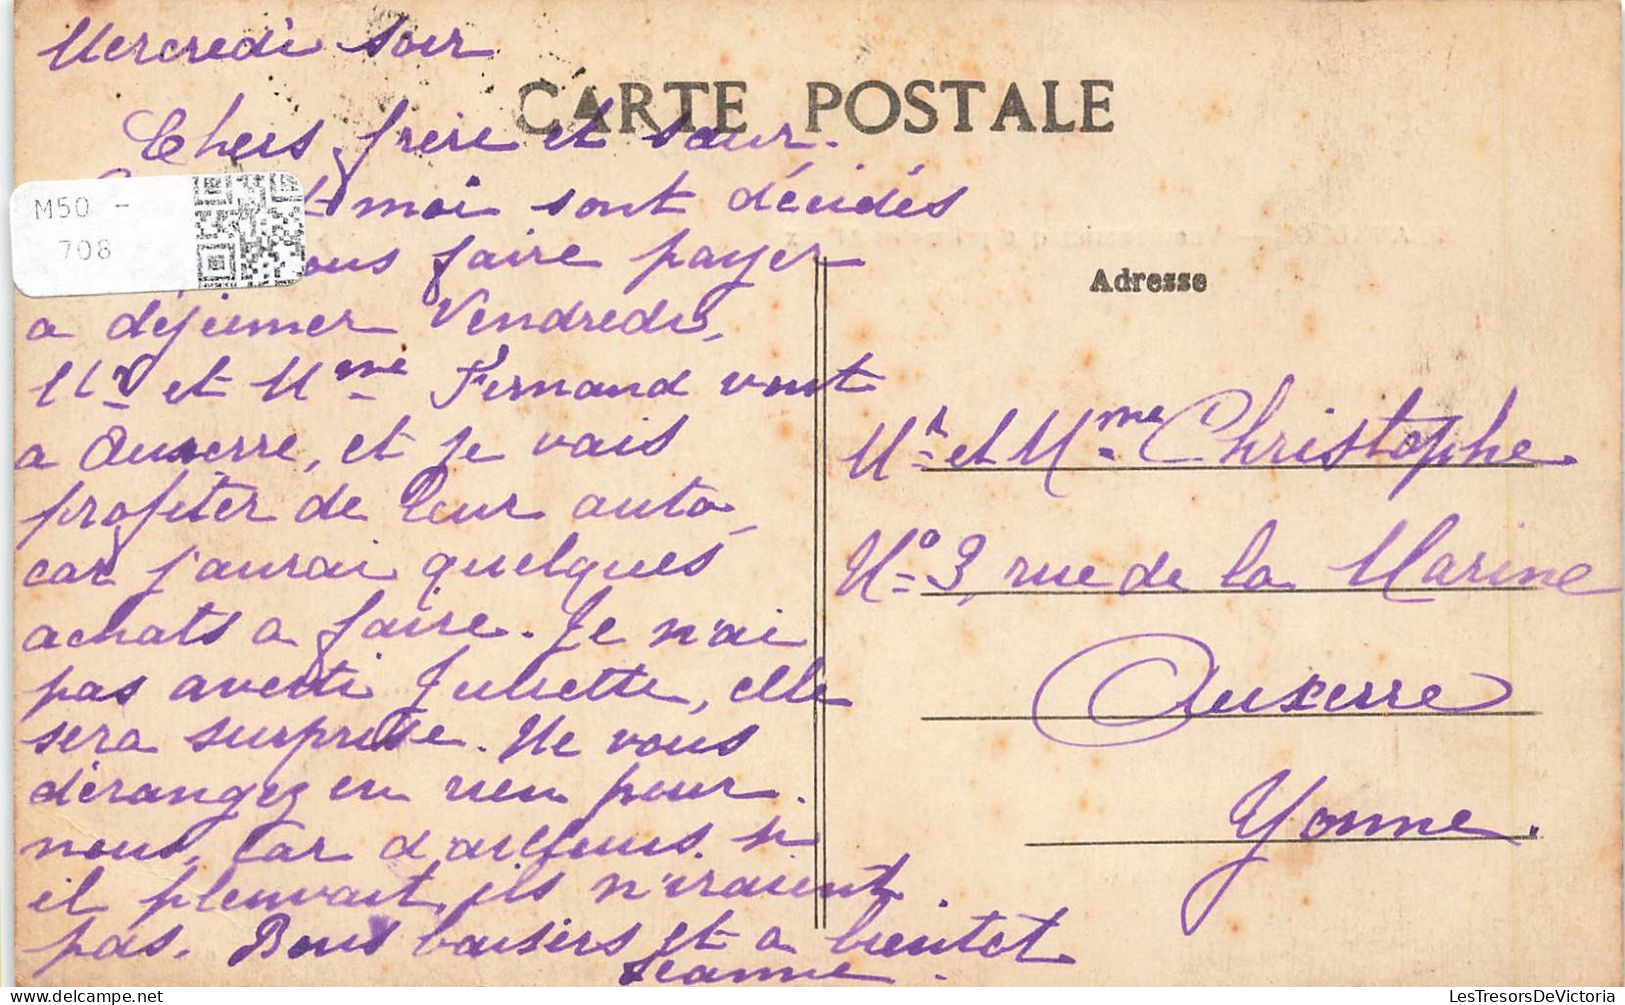 Mercredi soir
CARTE POSTALE
Chers frère et sœur.
moi sont décidés
faire payer
a déjeuner Vendredi,
Mr et Mme Fernand vont
a Auxerre, et je vais
profiter de leur auto,
car j'aurai quelques
achats a faire. Je n'ai
pas averti Juliette, elle
sera surprise. Ne vous
dérangez en rien pour
nous, Car d'ailleurs. si
il pleuvait, ils n'iraient
pas. Bons baisers et a bientot
Jeanne.
M50 -
708
Adresse
Mr et Mme Christophe
No 3, rue de la Marine
Auxerre
Yonne.
LesTresorsDeVictoria